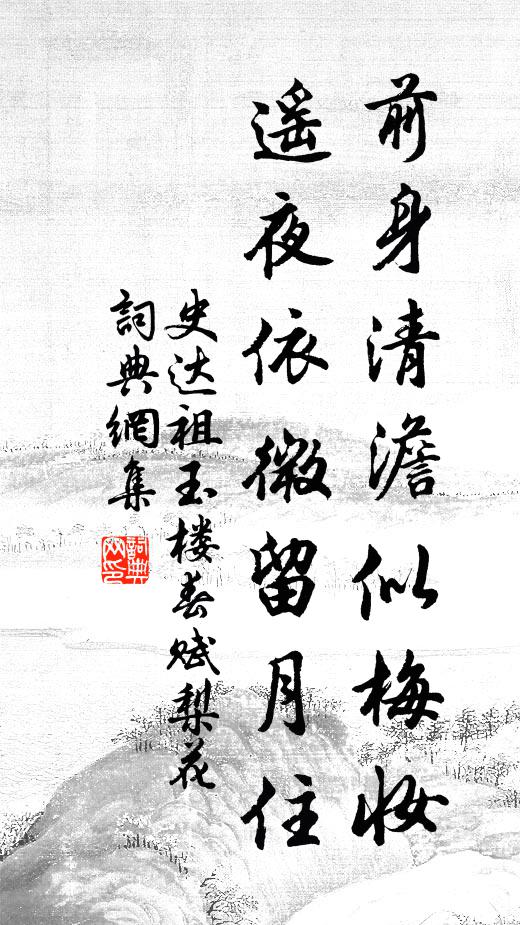 前身清澹似梅妆
遥夜依微留月住
史达祖玉楼春赋梨花
詞典網集
詞典网印